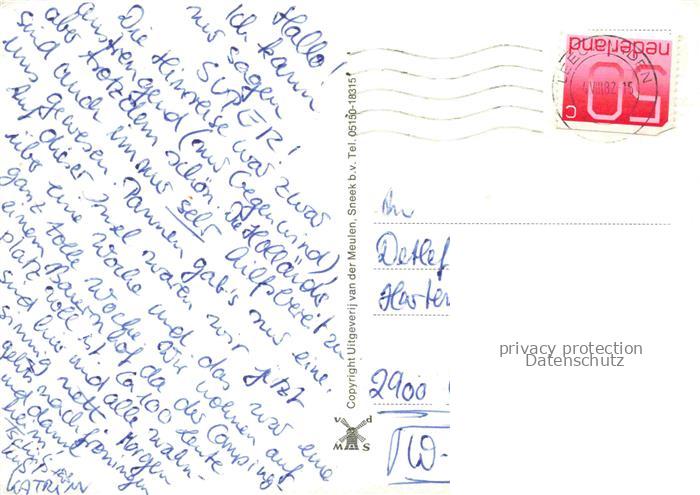 Hallo!
Ich kann
nur sagen
SUPER!
Die Hinreise war zwar
anstrengend (nur Gegenwind)
aber trotzdem schön. Die Holländer
sind auch immer sehr hilfsbereit zu
uns gewesen. Pannen gab's nur eine.
Auf dieser Insel waren wir jetzt
über eine Woche und das war eine
ganz tolle Woche. Wir wohnen auf
einem Bauernhof da der Camping-
platz voll ist. Ca 100 Leute
sind hier und alle wahn-
sinnig nett. Morgen
geht's nach Groningen
und dann
heim!
Tschüs
KATRIN
Copyright Uitgeverij van der Meulen, Sneek b.v. Tel. 05150-18315
v d
M S
nederland
50
c
An
Detlef
2900
privacy protection
Datenschutz